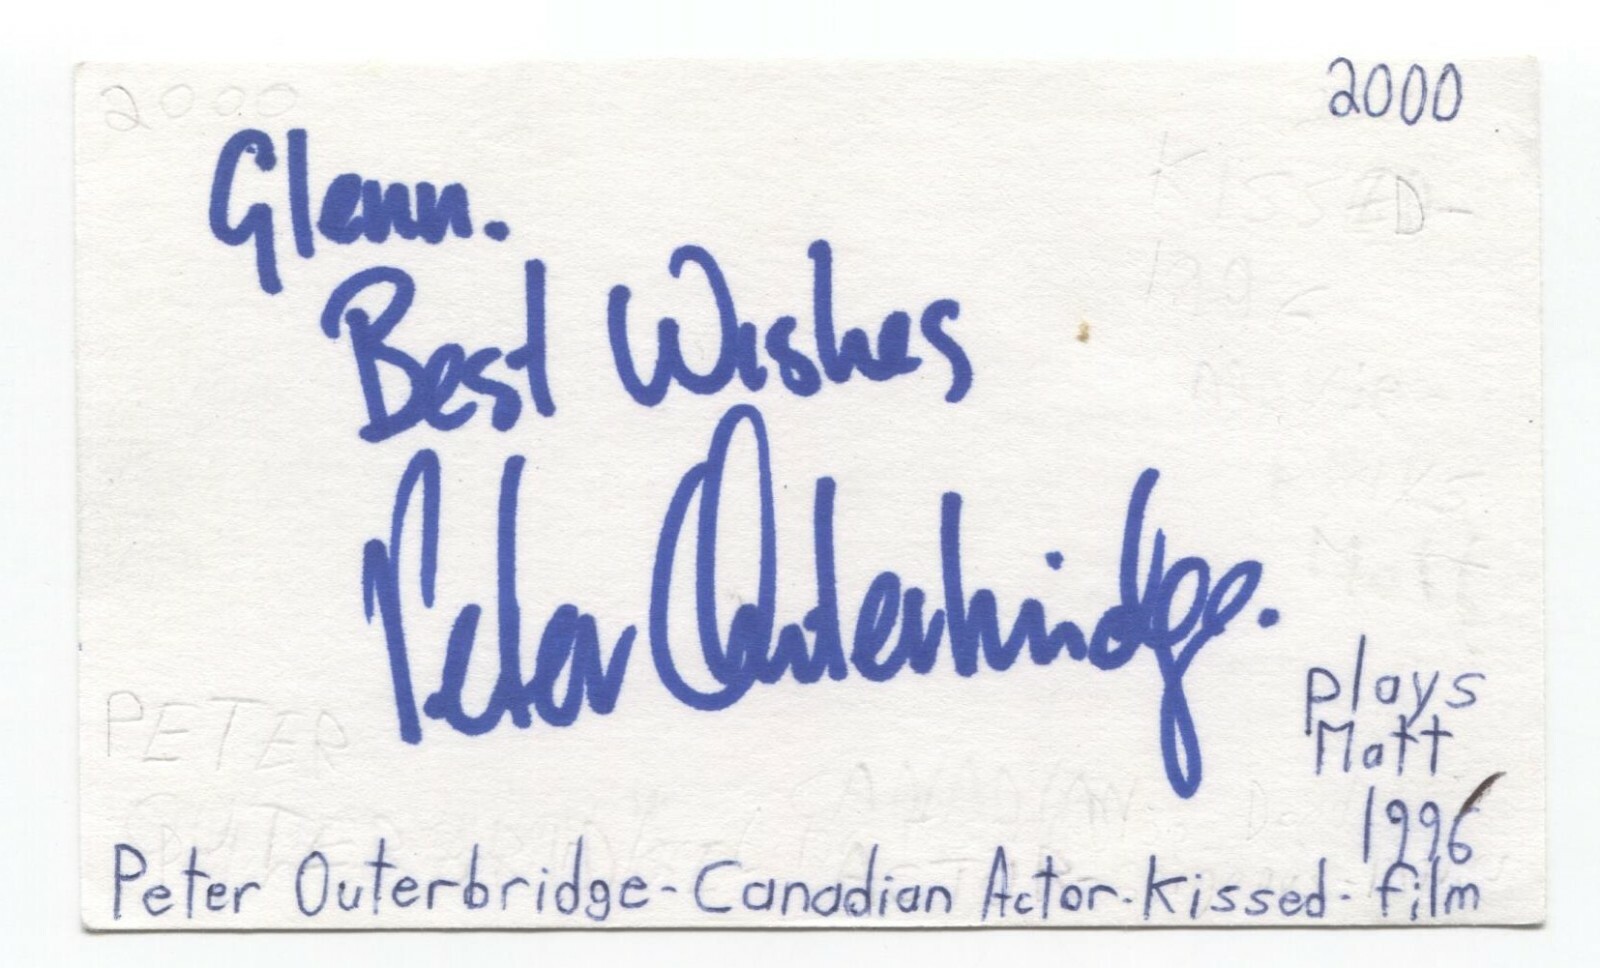 2000
2000
Glenn.
KISSED-
Best Wishes
Peter Outerbridge.
plays
Matt
PETER
1996
Peter Outerbridge-Canadian Actor-Kissed-film